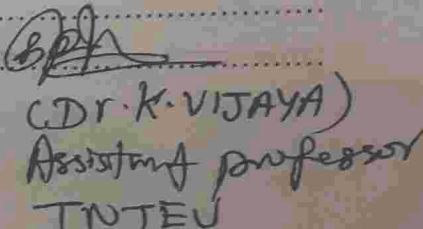 (Dr. K. VIJAYA)
Assistant professor
TNTEU